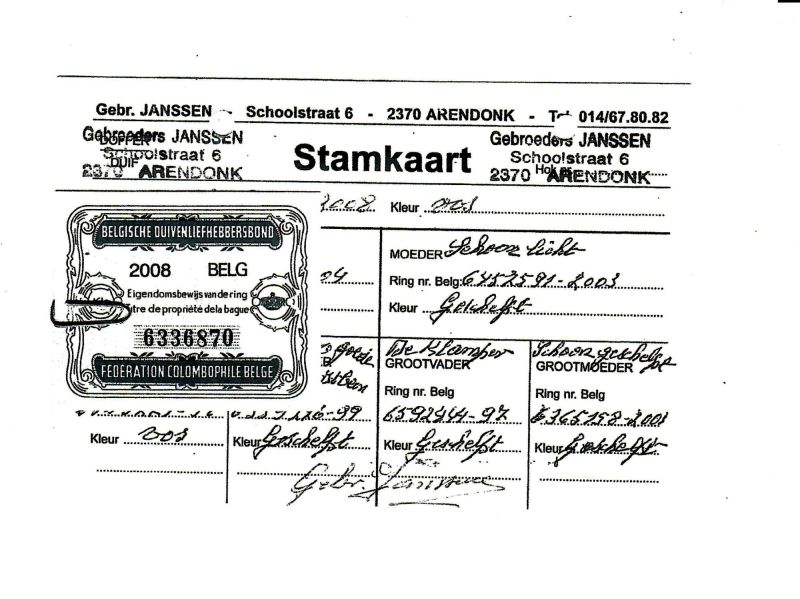 Gebr. JANSSEN - Schoolstraat 6 - 2370 ARENDONK - Tel 014/67.80.82
Gebroeders JANSSEN
DOFFER
Schoolstraat 6
DUIF
2370 ARENDONK
Stamkaart
Gebroeders JANSSEN
Schoolstraat 6
2370 ARENDONK
2008 Kleur vos
BELGISCHE DUIVENLIEFHEBBERSBOND
2008 BELG
Eigendomsbewijs van de ring
Titre de propriété de la bague
6336870
FEDERATION COLOMBOPHILE BELGE
MOEDER Schoon licht
Ring nr. Belg: 6452591-2003
Kleur Geschelft
GROOTVADER
Ring nr. Belg
6592444-97
Kleur Geschelft
Schoon geschelpt
GROOTMOEDER
Ring nr. Belg
6365158-2001
Kleur Geschelft
Kleur vos
-99
Kleur Geschelft
Gebr. Janssen